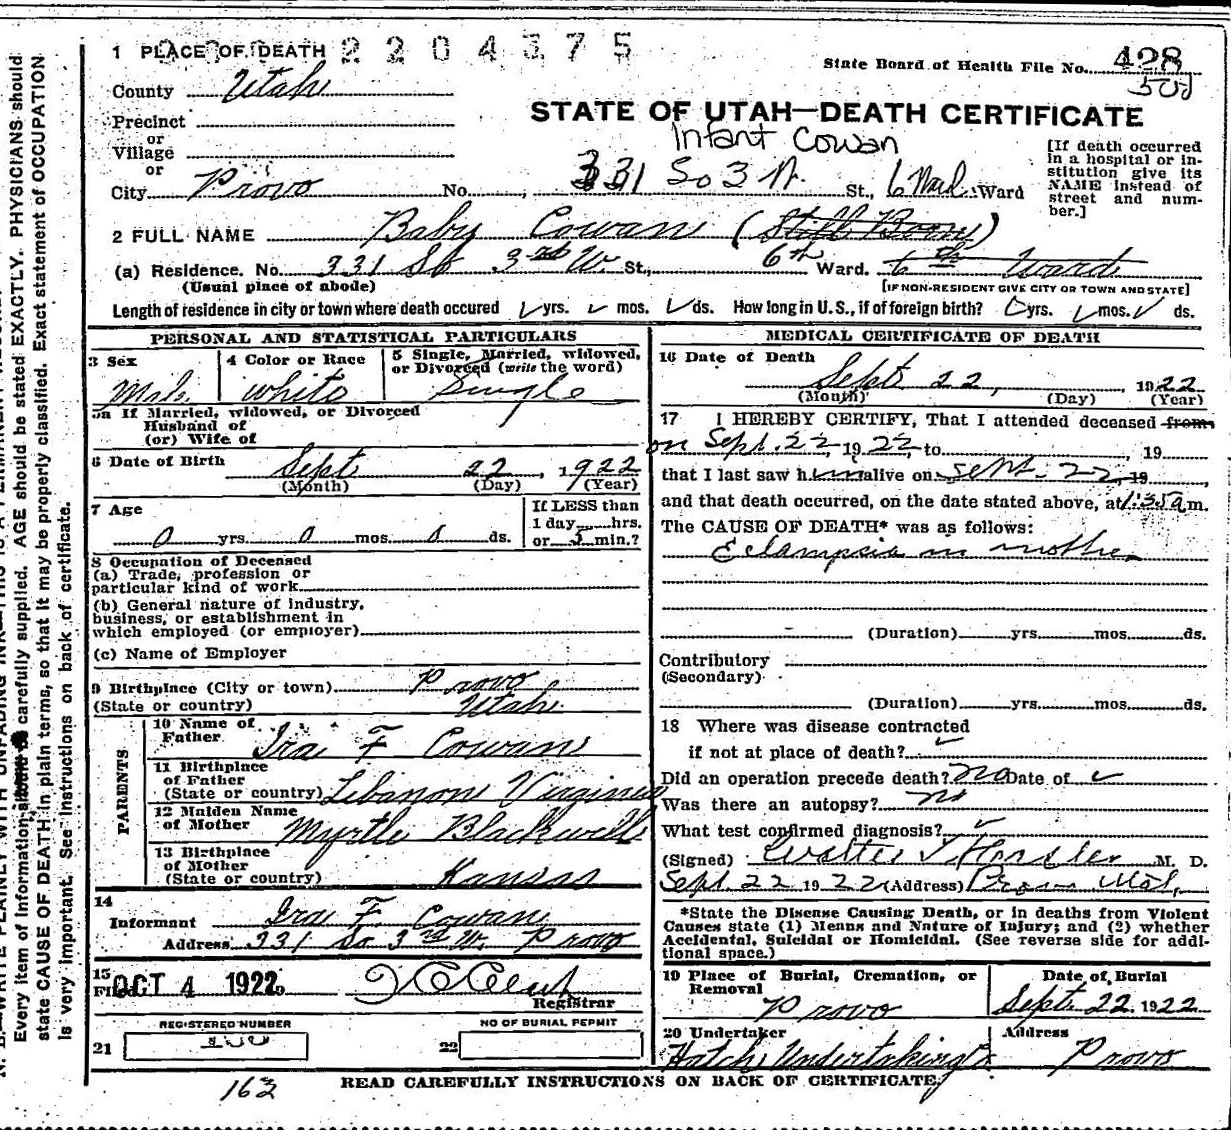 1 PLACE OF DEATH
2 2 0 4 3 7 5
State Board of Health File No. 428
County Utah
STATE OF UTAH—DEATH CERTIFICATE
Precinct
or
Village
or
Infant Cowan
City Provo No. 331 So 3 W. St., 6 Ward
[If death occurred in a hospital or institution give its NAME instead of street and number.]
2 FULL NAME Baby Cowan (Still Born)
(a) Residence. No. 331 So 3rd W. St., 6th Ward. 6th Ward
(Usual place of abode)
[IF NON-RESIDENT GIVE CITY OR TOWN AND STATE]
Length of residence in city or town where death occured yrs. mos. ds. How long in U.S., if of foreign birth? yrs. mos. ds.
PERSONAL AND STATISTICAL PARTICULARS
3 Sex
Male
4 Color or Race
White
5 Single, Married, widowed, or Divorced (write the word)
Single
5a If Married, widowed, or Divorced
Husband of
(or) Wife of
6 Date of Birth Sept 22, 1922
(Month) (Day) (Year)
7 Age
0 yrs. 0 mos. 0 ds.
If LESS than
1 day hrs.
or 5 min.?
8 Occupation of Deceased
(a) Trade, profession or
particular kind of work
(b) General nature of industry,
business, or establishment in
which employed (or employer)
(c) Name of Employer
9 Birthplace (City or town) Provo
(State or country) Utah
PARENTS
10 Name of
Father Ira F Cowan
11 Birthplace
of Father
(State or country) Lebanon Virginia
12 Maiden Name
of Mother Myrtle Blackwell
13 Birthplace
of Mother
(State or country) Kansas
14
Informant Ira F. Cowan
Address 331 So 3rd W. Provo
15
Filed OCT 4 1922
Registrar
REGISTERED NUMBER
21
NO OF BURIAL PEPMIT
22
MEDICAL CERTIFICATE OF DEATH
16 Date of Death
Sept 22, 1922
(Month) (Day) (Year)
17 I HEREBY CERTIFY, That I attended deceased from
on Sept. 22, 1922 to 19
that I last saw him alive on Sept. 22, 19
and that death occurred, on the date stated above, at 1:35 a m.
The CAUSE OF DEATH* was as follows:
Eclampsia in mother
(Duration) yrs. mos. ds.
Contributory
(Secondary)
(Duration) yrs. mos. ds.
18 Where was disease contracted
if not at place of death?
Did an operation precede death? No Date of
Was there an autopsy? no
What test confirmed diagnosis?
(Signed) Walter T Hasler M. D.
Sept. 22 1922 (Address) Provo Utah
*State the Disease Causing Death, or in deaths from Violent
Causes state (1) Means and Nature of Injury; and (2) whether
Accidental, Suicidal or Homicidal. (See reverse side for addi-
tional space.)
19 Place of Burial, Cremation, or
Removal
Provo
Date of Burial
Sept. 22. 1922
20 Undertaker
Hatch Undertaking Co
Address
Provo
READ CAREFULLY INSTRUCTIONS ON BACK OF CERTIFICATE
162
Every item of information should be carefully supplied. AGE should be stated EXACTLY. PHYSICIANS should
state CAUSE OF DEATH in plain terms, so that it may be properly classified. Exact statement of OCCUPATION
is very important. See instructions on back of certificate.